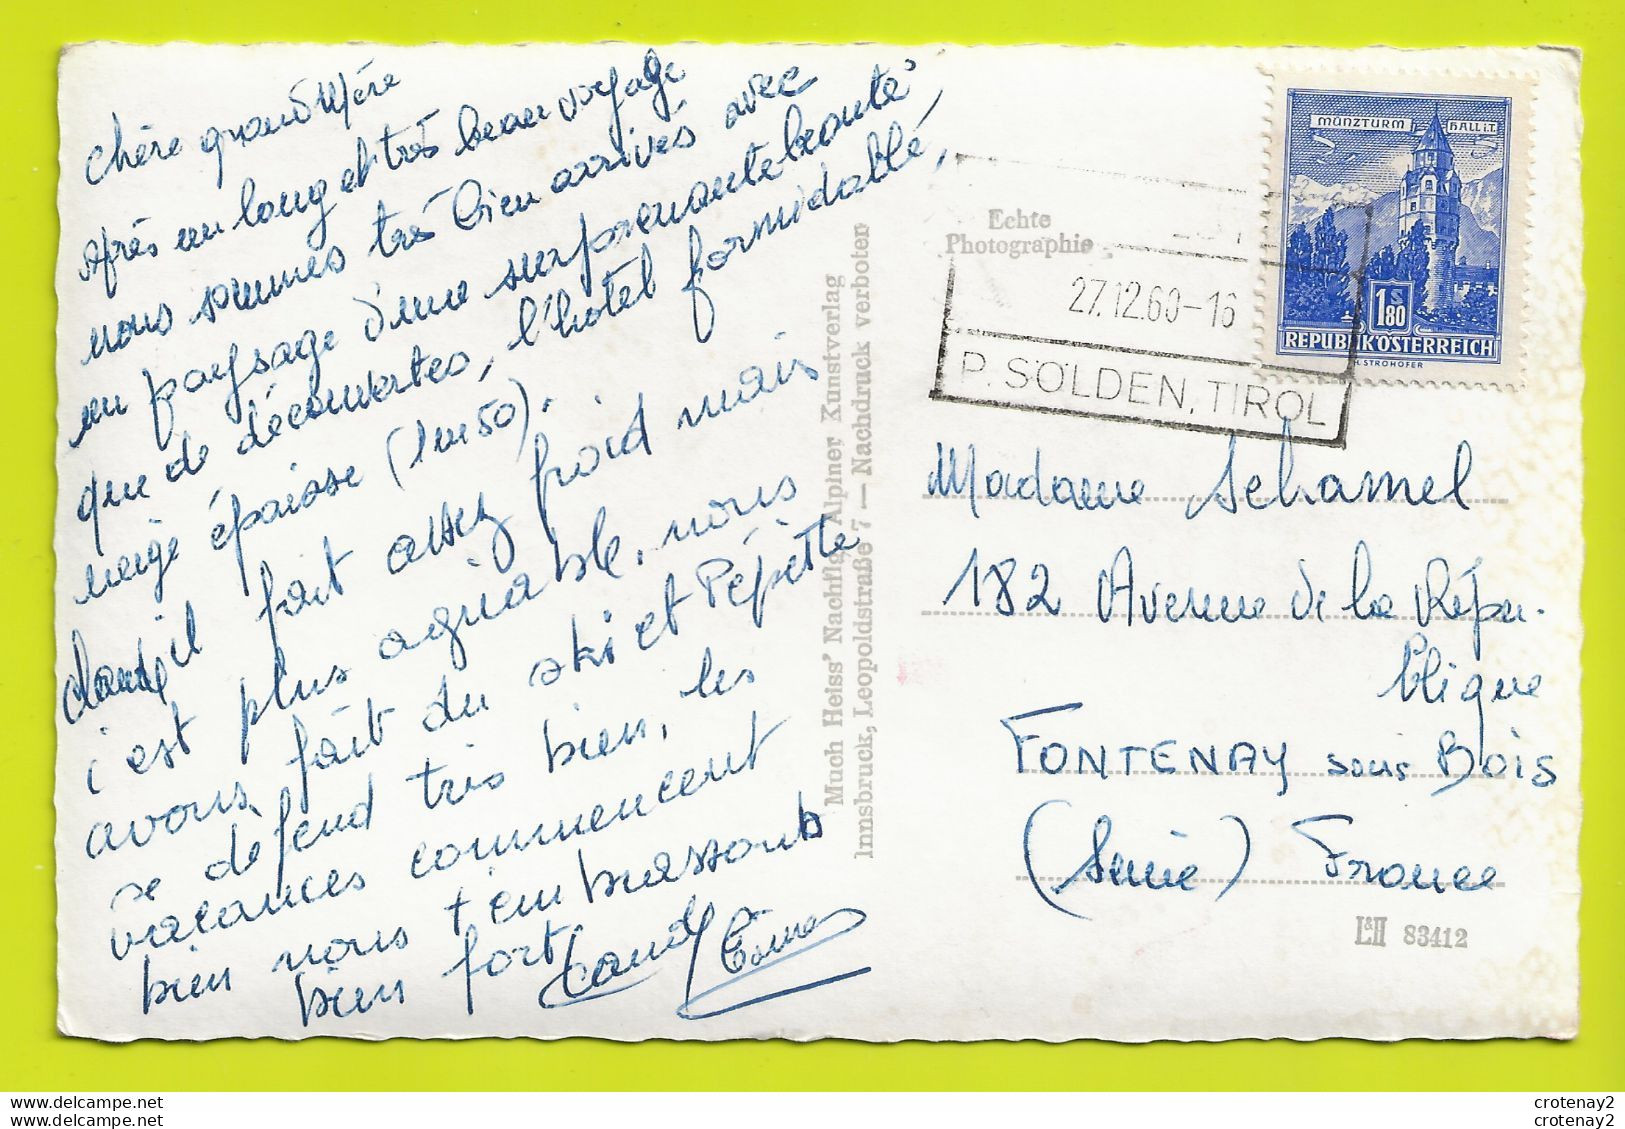 chère grand Mère
Après un long et très beau voyage
nous sommes très bien arrivés avec
un paysage d'une surprenante beauté
que de découvertes, l'hotel formidable,
neige épaisse (1m50).
il fait assez froid mais
c'est plus agréable, nous
avons fait du ski et Pépette
se défend très bien, les
vacances commencent
bien nous t'embrassons
bien fort
Claude
Echte
Photographie
Much Heiss' Nachflg. Alpiner Kunstverlag
Innsbruck, Leopoldstraße 7 — Nachdruck verboten
MÜNZTURM HALL i.T.
1 S 80
REPUBLIK ÖSTERREICH
STROHOFER
27.12.60-16
P. SÖLDEN, TIROL
Madame Schamel
182 Avenue de la Répu-
blique
FONTENAY sous Bois
(Seine) France
L&H 83412
www.delcampe.net
www.delcampe.net
crotenay2
crotenay2